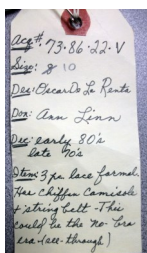 Acq#. 73.86.22.V
Size: 8 10
Des: Oscar De La Renta
Don: Ann Linn
Dec: early 80's
late 70's
Item: 3 pc lace formal.
Has Chiffon Camisole
+ string belt - This
could be the no-bra
era - (see-through)